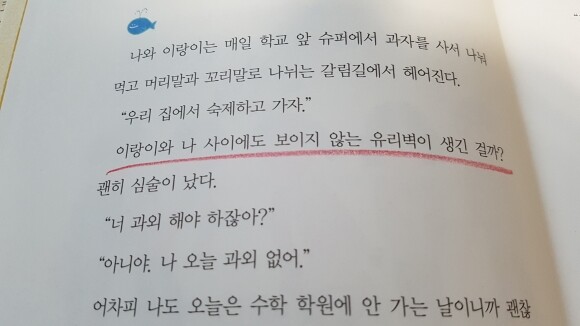 나와 이랑이는 매일 학교 앞 슈퍼에서 과자를 사서 나눠
먹고 머리말과 꼬리말로 나뉘는 갈림길에서 헤어진다.
“우리 집에서 숙제하고 가자.”
이랑이와 나 사이에도 보이지 않는 유리벽이 생긴 걸까?
괜히 심술이 났다.
“너 과외 해야 하잖아?”
“아니야. 나 오늘 과외 없어.”
어차피 나도 오늘은 수학 학원에 안 가는 날이니까 괜찮